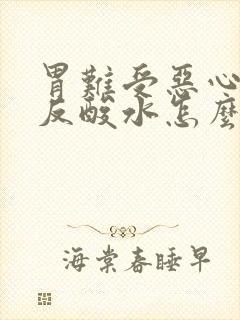 胃難受惡心
反酸水怎麼
海棠春睡早